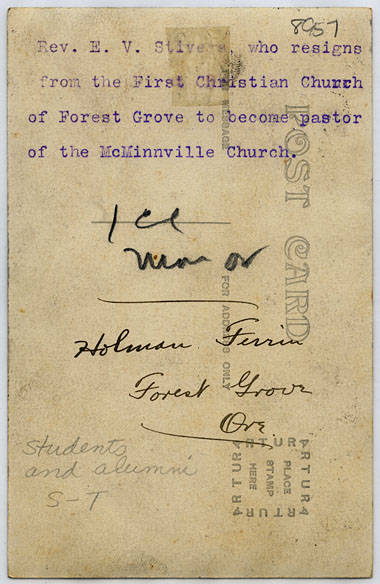 8957
Rev. E. V. Stivers, who resigns
from the First Christian Church
of Forest Grove to become pastor
of the McMinnville Church.
POST CARD
MESSAGE
FOR ADDRESS ONLY
1 cl
Mon or
Holman Ferrin
Forest Grove
Ore.
Students
and alumni
S-T
ARTURA
PLACE
STAMP
HERE
ARTURA
ARTURA
ARTURA